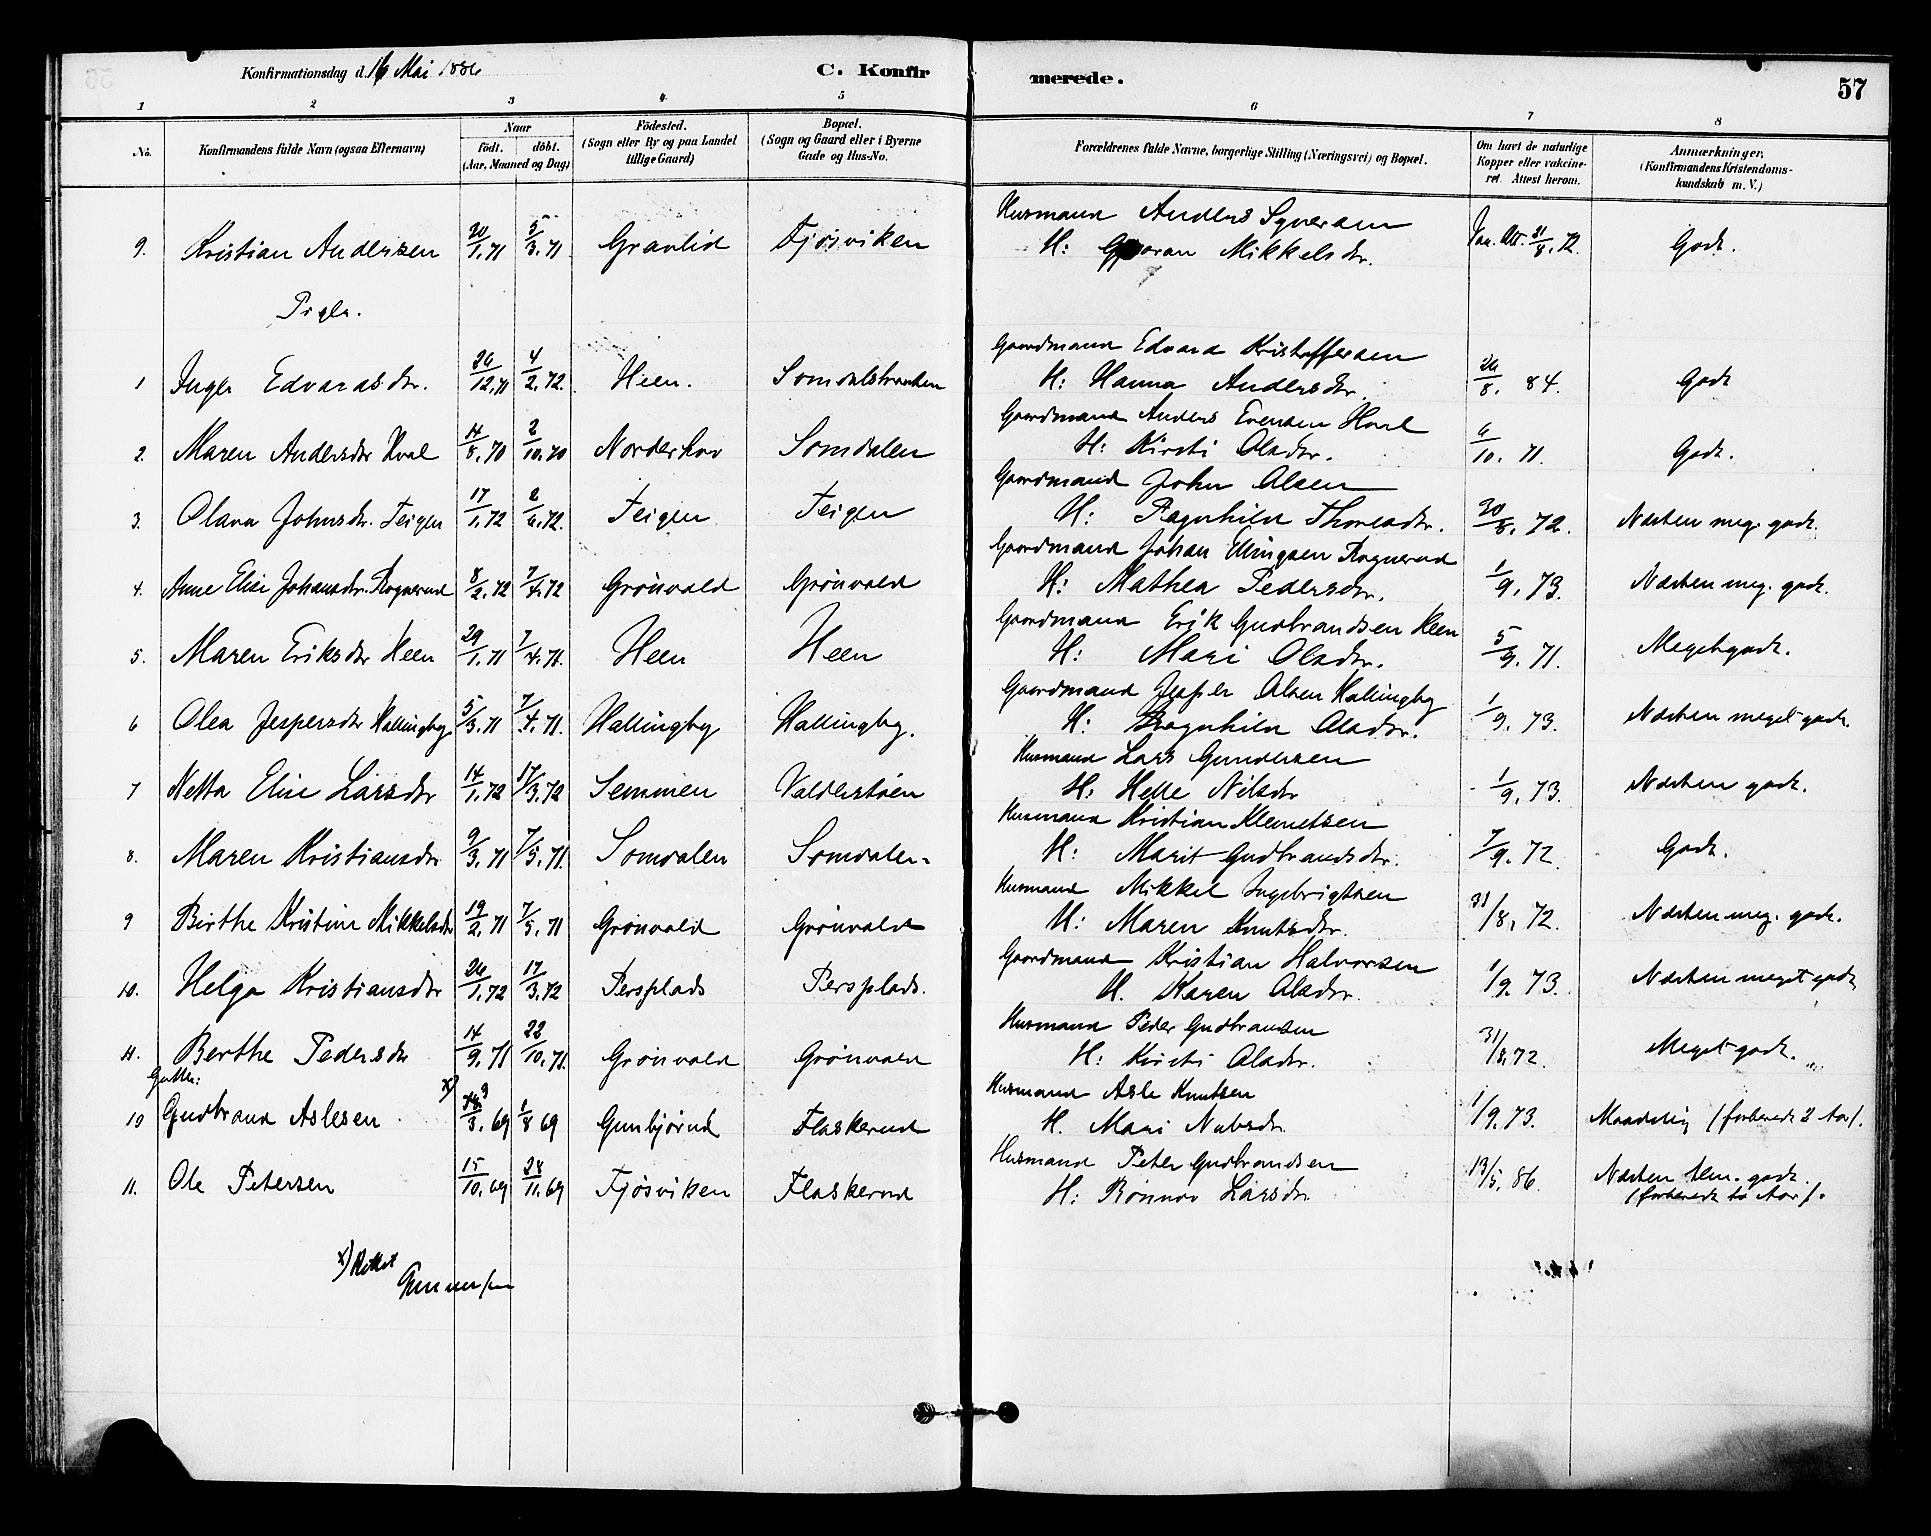 Konfirmationsdag d. 16 Mai 1886
C. Konfir
merede.
57
1 2 3 4 5 6 7 8
No.
Konfirmandens fulde Navn (ogsaa Efternavn)
Naar
födt. döbt.
(Aar, Maaned og Dag)
Födested.
(Sogn eller By og paa Landet
tillige Gaard)
Bopæl.
(Sogn og Gaard eller i Byerne
Gade og Hus-No.
Forældrenes fulde Navne, borgerlige Stilling (Næringsvei) og Bopæl.
Om havt de naturlige
Kopper eller vakcine-
ret. Attest herom.
Anmærkninger,
(Konfirmandens Kristendoms-
kundskab m. V.)
Husmand Anders Syversen
9. Kristian Andersen 20/1. 71 5/3. 71 Gravlid Fjøsviken H: Mikkelsdr. Att. 31/8. 72. Godt.
Piger.
Gaardmand Edvard Kristoffersen
1 Inger Edvardsdr. 26/12. 71 4/2. 72. Heen. H: Hanna Andersdr. 26/8. 84. Godt
Gaardmand Anders Evensen Hval
2. Maren Andersdtr Hval 14/8. 70 2/10. 70 Norderhov Somdalen H: Kirsti Olsdtr. 6/10. 71. Godt.
Gaardmand John Olsen
3. Olava Johnsdr. Teigen 17/1. 72 2/6. 72. Teigen Teigen H: Ragnhild Thoresdtr. 20/8. 72. Næsten meg. godt.
Gaardmand Johan Rognerud
4. Anne Elise Johansdr. Rognerud 8/2. 72 7/4. 72 Grönvold Grönvold H: Mathea Pedersdtr. 1/9. 73. Næsten meg. godt.
Gaardmand Erik Gudbrandsen Heen
5. Maren Eriksdtr Heen 29/1. 71 7/4. 71. Heen Heen H: Mari Olsdtr. 5/9. 71. Meget godt.
Gaardmand Jesper Olsen Hallingby
6 Olea Jespersdtr Hallingby 5/3. 71 7/4. 71. Hallingby Hallingby. H: Ragnhild Olsdtr. 1/9. 73. Næsten meget godt.
Husmand Lars Gundersen
7 Netta Elise Larsdtr 14/1. 72 17/3. 72 Semmen Valderstöen H: Helle Nilsdtr 1/9. 73. Næsten godt.
Husmand Kristian Klemetsen
8. Maren Kristiansdtr 9/3. 71 7/5. 71. Somdalen Somdalen. H: Marit Gudbrandsdtr. 7/9. 72. Godt.
Husmand Mikkel Ingebrigtsen
9 Birthe Kristine Mikkelsdtr 19/2. 71 7/5. 71 Grönvold Grönvold H: Maren Knutsdtr. 31/8. 72. Næsten meg. godt.
Gaardmand Kristian Halvorsen
10. Helga Kristiansdtr 26/1. 72 17/3. 72 Persplads Persplads. H. Karen Olsdtr. 1/9. 73. Næsten meget godt
Husmand Peder Gudbransen
11. Berthe Pedersdtr 14/9. 71 22/10. 71. Grönvold Grönvold H: Kirsti Olsdtr. 31/8. 72. Meget godt.
Gutter:
Husmand Asle Knutsen
10 Gudbrand Aslesen x) /3. 69 1/8 69 Gunbjørud Flaskerud H. Mari Nubsdr. 1/9. 73. Maadelig (forberedt 2 Aar).
Husmand Peter Gudbrandsen
11. Ole Petersen 15/10. 69 28/11. 69 Fjösviken Flaskerud H: Rönnov Larsdtr. 13/5. 86. Næsten tem. godt.
(forberedt to Aar).
x) Rettet